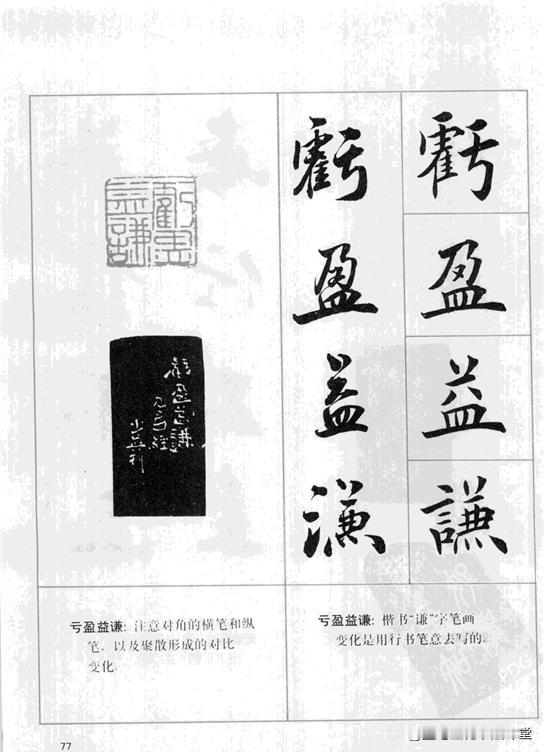 虧盈益謙
虧盈益謙
虧盈
益謙
虧盈益謙
亏盈益谦: 楷书“谦”字笔画
变化是用行书笔意去写的。
亏盈益谦: 注意对角的横笔和纵
笔，以及聚散形成的对比
变化。
77
PDG
堂